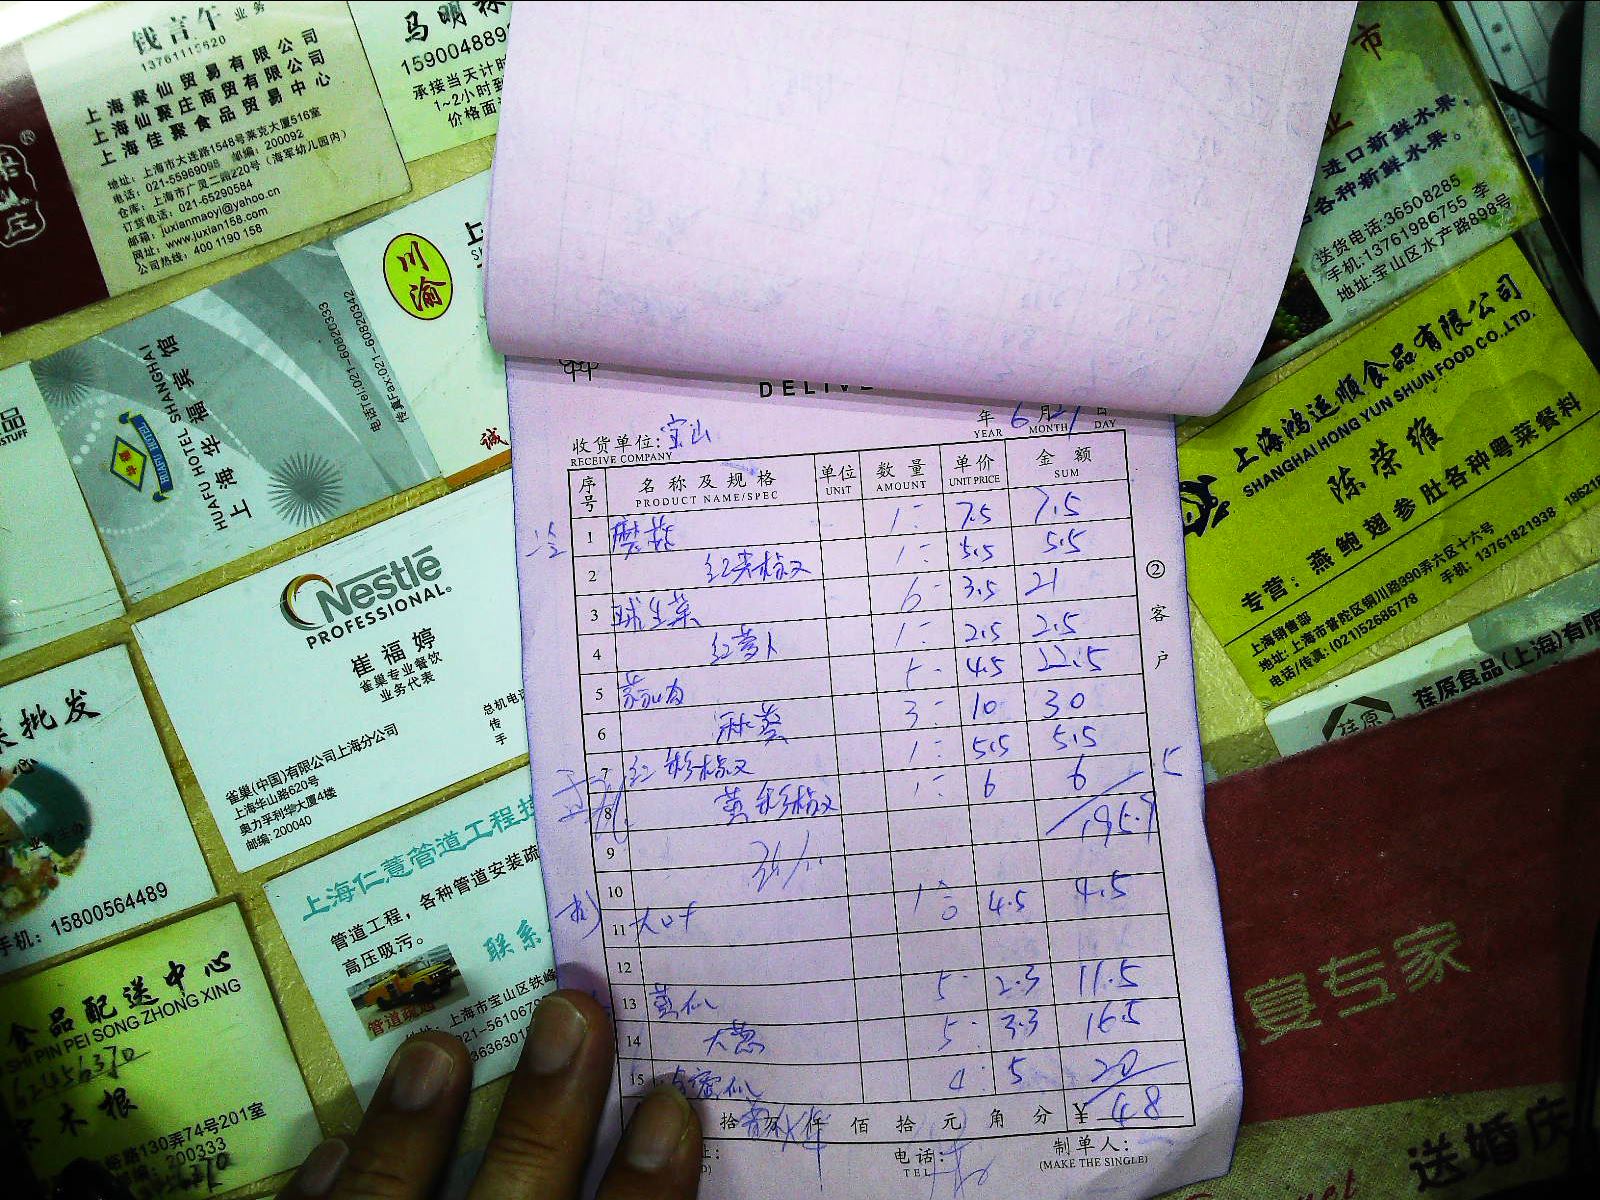 钱言午 业务
13761115620
上海聚仙贸易有限公司
上海仙聚庄商贸有限公司
上海佳聚食品贸易中心
地址:上海市大连路1548号莱克大厦516室
电话:021-55969098 邮编:200092
仓库:上海市广灵二路220号(海军幼儿园内)
订货电话:021-65290584
邮箱:juxianmaoyi@yahoo.cn
网址:www.juxian158.com
公司热线:400 1190 158
马明
15900488
承接当天计时
1~2小时到
价格面
市
业
进口新鲜水果,
各种新鲜水果。
送货电话:36508285
手机:13761986755 李
地址:宝山区水产路898号
川渝
上
诚
HUAFU HOTEL SHANGHAI
上海华福宾馆
电话Tel:021-60820333
传真Fax:021-60820342
HUAFU HOTEL
品
STUFF
Nestlé
PROFESSIONAL
崔福婷
雀巢专业餐饮
业务代表
雀巢(中国)有限公司上海分公司
上海华山路620号
奥力孚利华大厦4楼
邮编:200040
总机电话
传
手
上海鸿运顺食品有限公司
SHANGHAI HONG YUN SHUN FOOD CO.,LTD.
陈荣维
专营:燕鲍翅参肚各种粤菜餐料
上海销售部
地址:上海市普陀区铜川路390弄六区十六号
电话/传真:(021)52686778 手机:13761821938 18621
荏原
荏原食品(上海)有限
批发
心
手机:15800564489
上海仁薏管道工程技
管道工程,各种管道安装疏
高压吸污。
联系
管道疏通
上海市宝山区铁峰
021-56106
3636301
食品配送中心
SHI PIN PEI SONG ZHONG XING
62456370
木根
路130弄74号201室
邮编:200333
宴专家
送婚庆
DELIVE
收货单位: 宝山
RECEIVE COMPANY
年 6 月 21 日
YEAR MONTH DAY
序号 名称及规格 单位 数量 单价 金额
PRODUCT NAME/SPEC UNIT AMOUNT UNIT PRICE SUM
1 蘑菇 1 7.5 7.5
2 红尖椒 1 5.5 5.5
3 球生菜 6 3.5 21
4 红萝卜 1 2.5 2.5
5 5 4.5 22.5
6 秋葵 3 10 30
7 红彩椒 1 5.5 5.5
8 黄彩椒 1 6 6
9
10
11 大 1 4.5 4.5
12
13 黄瓜 5 2.3 11.5
14 大葱 5 3.3 16.5
15 4 5 20
拾 万 仟 佰 拾 元 角 分 ¥ 48
② 客户
电话:
TEL
制单人:
(MAKE THE SINGLE)